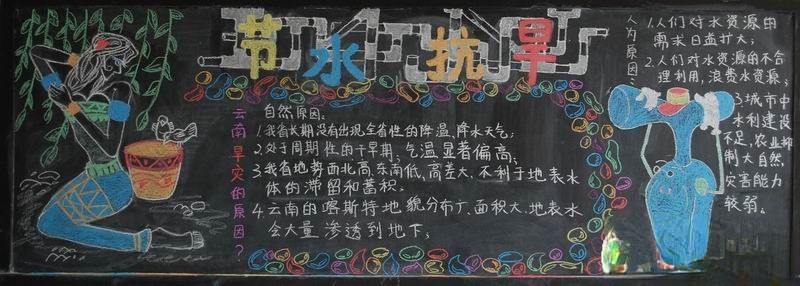 节水抗旱
云南旱灾的原因?
自然原因:
1.我省长期没有出现全省性的降温、降水天气;
2.处于周期性的干旱期,气温显著偏高;
3.我省地势西北高、东南低、高差大、不利于地表水
体的滞留和蓄积。
4.云南的喀斯特地貌分布广、面积大、地表水
会大量渗透到地下;
人为原因:
1.人们对水资源的
需求日益扩大;
2.人们对水资源的不合
理利用,浪费水资源;
3.城市中
水利建设
不足,农业抑
制大自然
灾害能力
较弱。